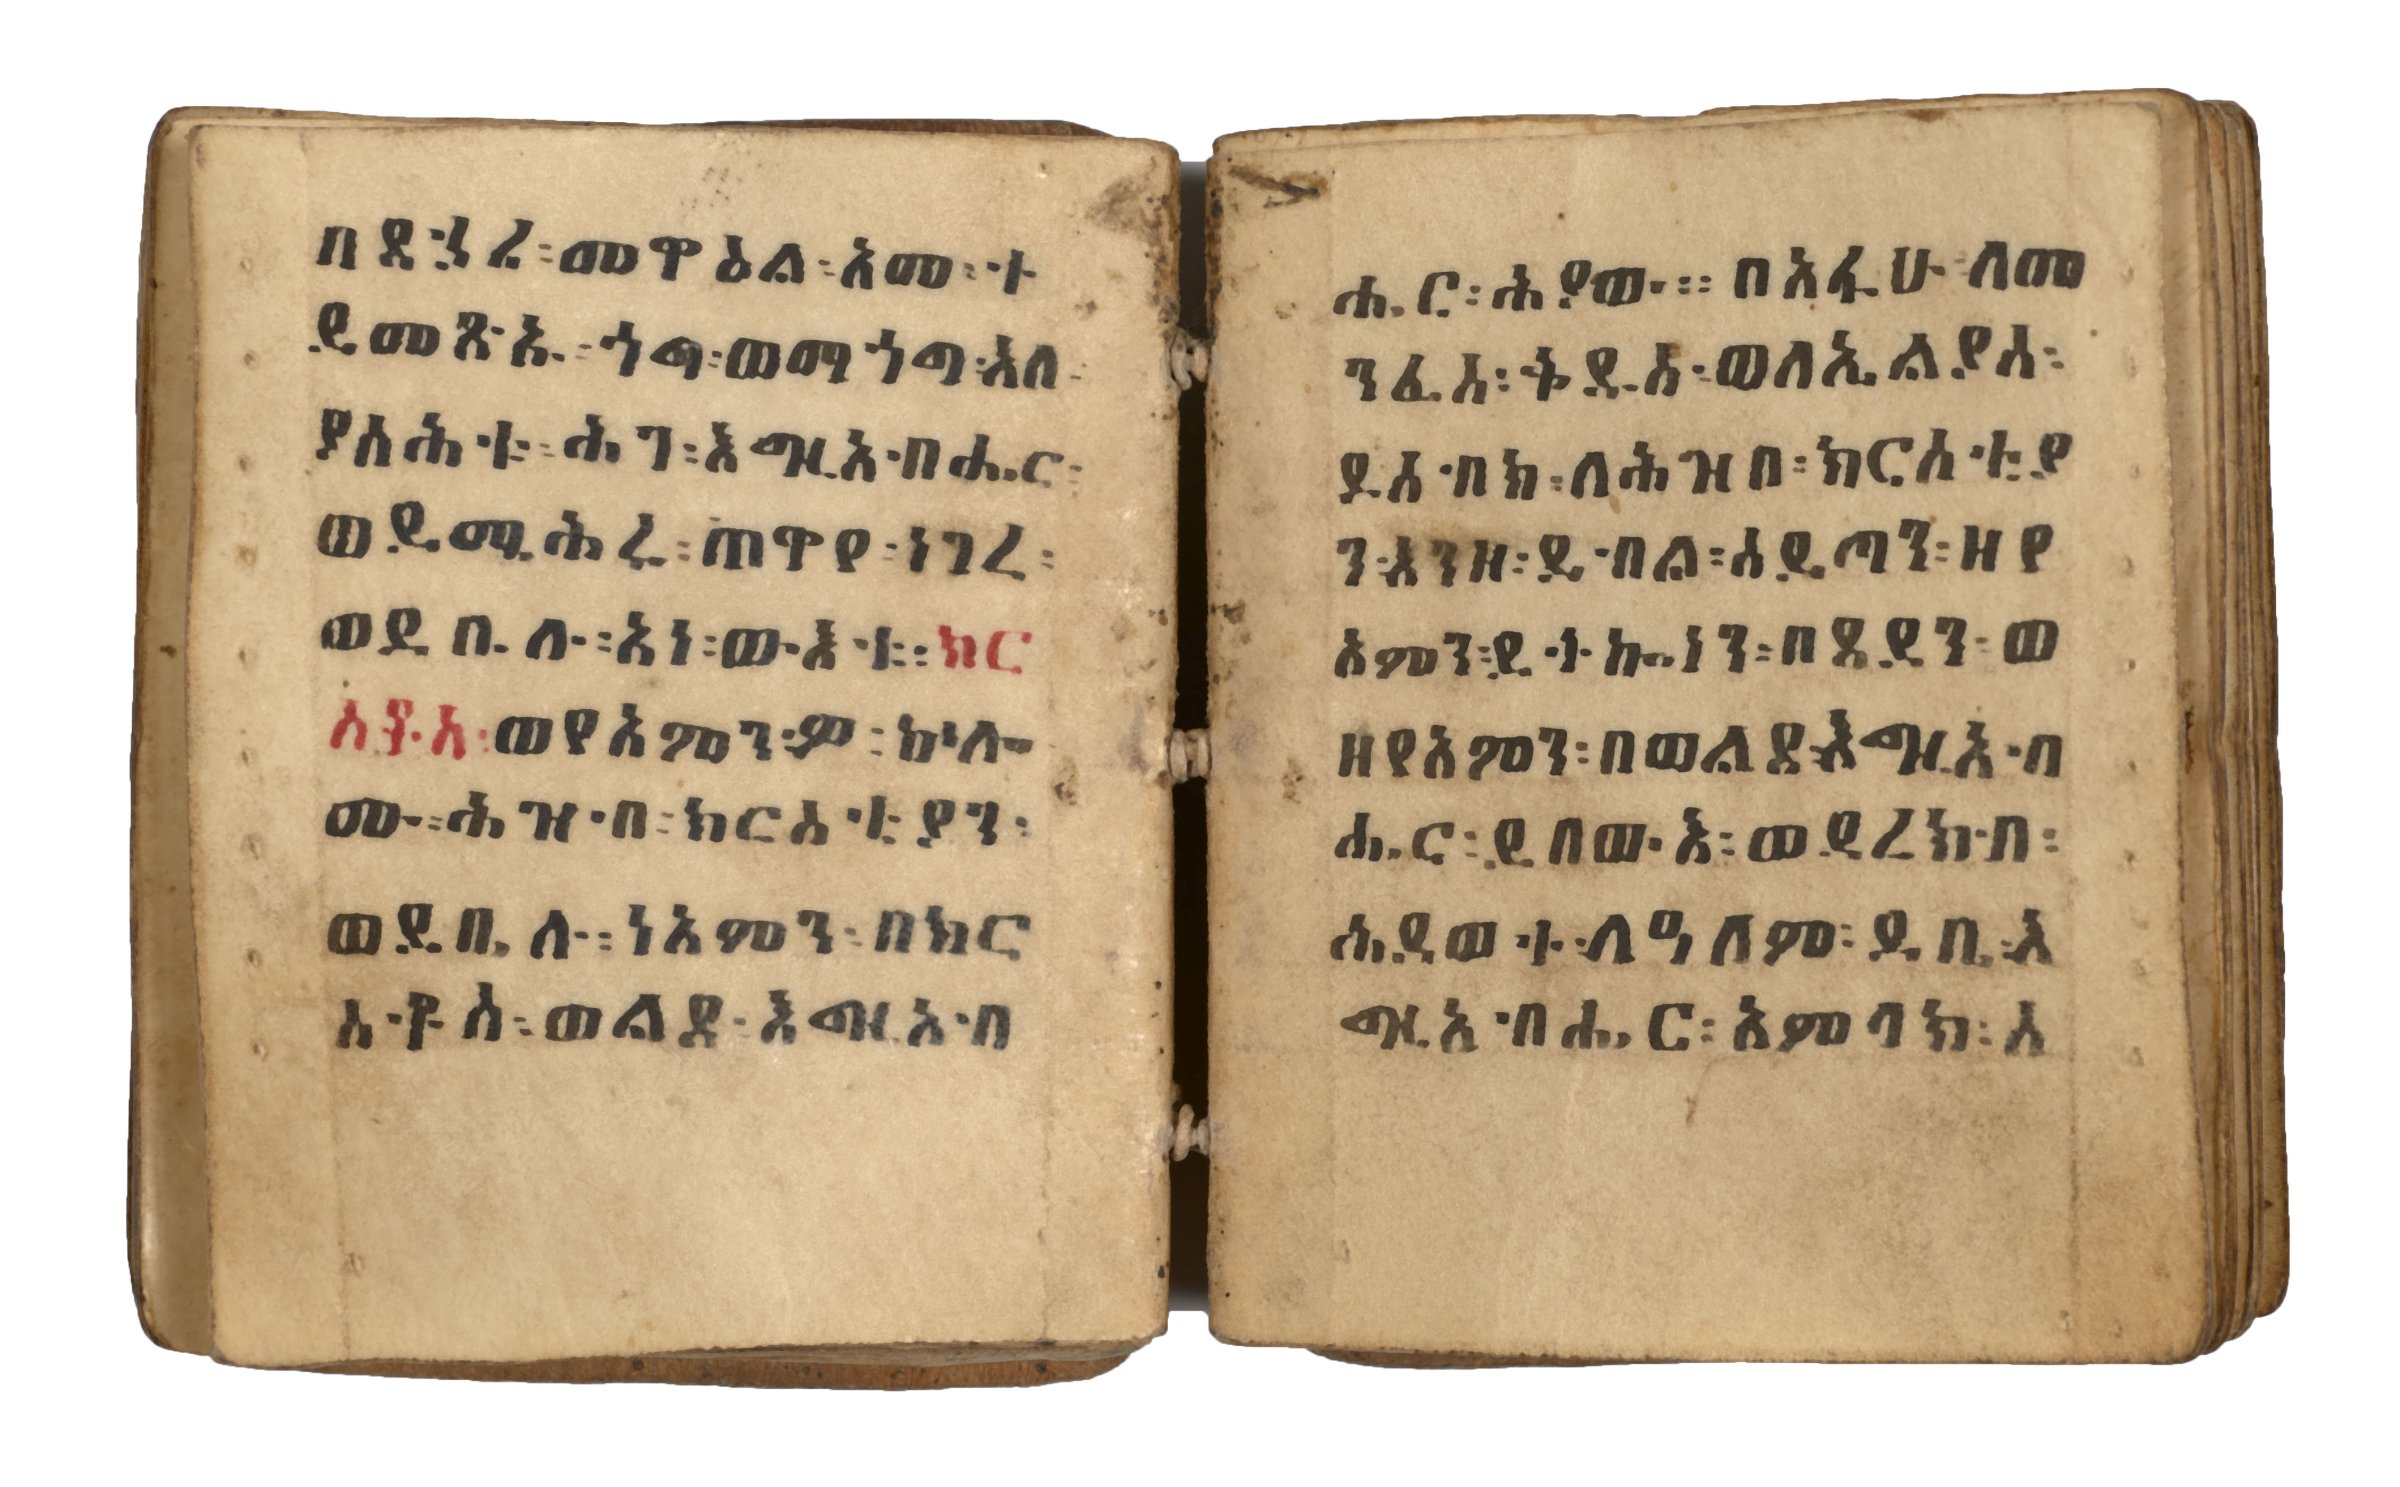 በደኃሪ፡መዋዕል፡አመ፡ተ
ይመጽኡ፡ጎጫ፡ወማጎጣ፡እለ፡
ያስሕቱ፡ሕገ፡እግዚአብሔር፡
ወይሚሕሩ፡ጠዋየ፡ነገረ፡
ወይቤሉ፡አነ፡ውእቱ፡፡ክር
ስቶስ፡ወየአምን፡ም፡ኵሎ
ሙ፡ሕዝብ፡ክርስቲያን፡
ወይቤሉ፡ነአምን፡በክር
ስቶስ፡ወልደ፡እግዚአብ
ሔር፡ሕያው፡፡በአፋሁ፡ለመ
ንፈስ፡ቅዱስ፡ወለኤልያስ፡
ይሰብክ፡ለሕዝበ፡ክርስቲያ
ን፡እንዘ፡ይብል፡ሰይጣን፡ዘየ
አምን፡ይትኴነን፡በደይን፡ወ
ዘየአምን፡በወልደ፡እግዚአብ
ሔር፡ይበውእ፡ወይረክብ፡
ሕይወተ፡ለዓለም፡ይቤ፡እ
ግዚአብሔር፡አምላክ፡እ